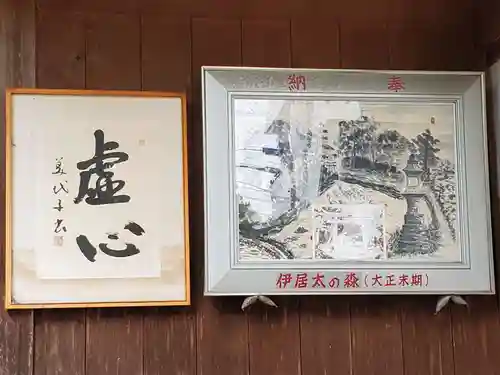 虚心
美代子書
納 奉
伊居太の森（大正末期）